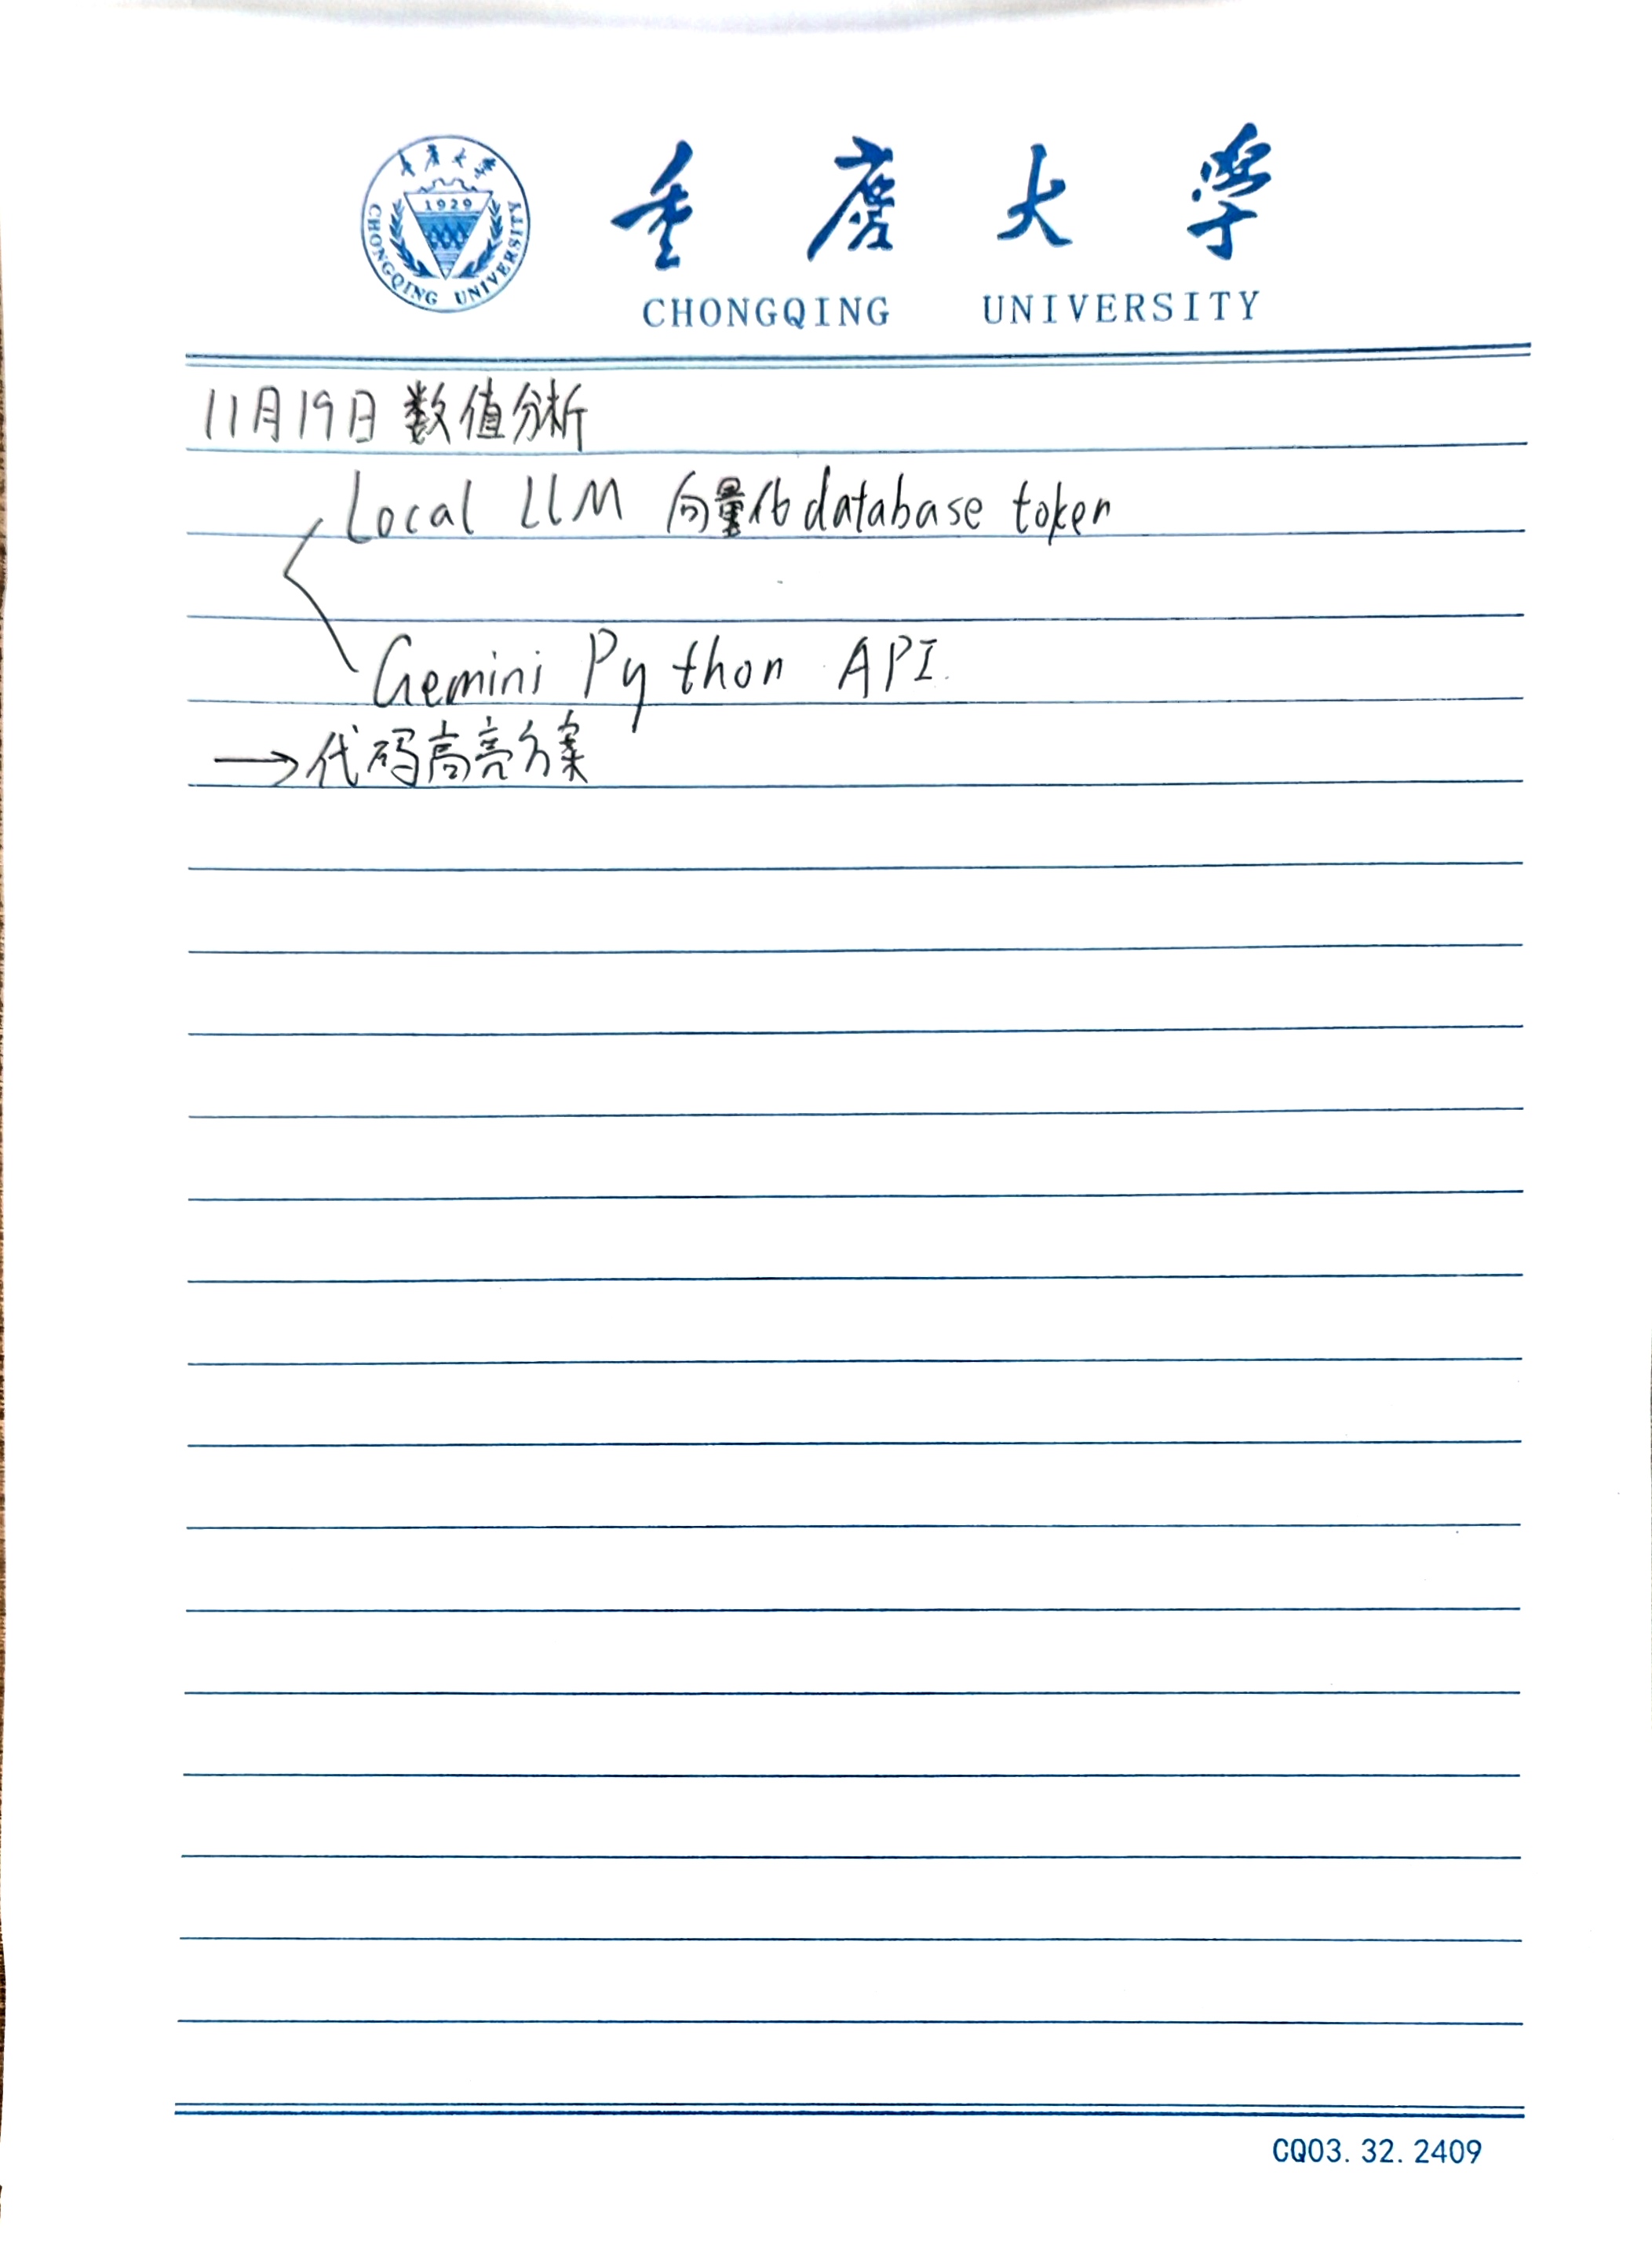 重庆大学
1929
CHONGQING UNIVERSITY
重庆大学
CHONGQING UNIVERSITY
11月19日 数值分析
Local LLM 向量化database token
Gemini Python API.
→代码高亮方案
CQ03.32.2409